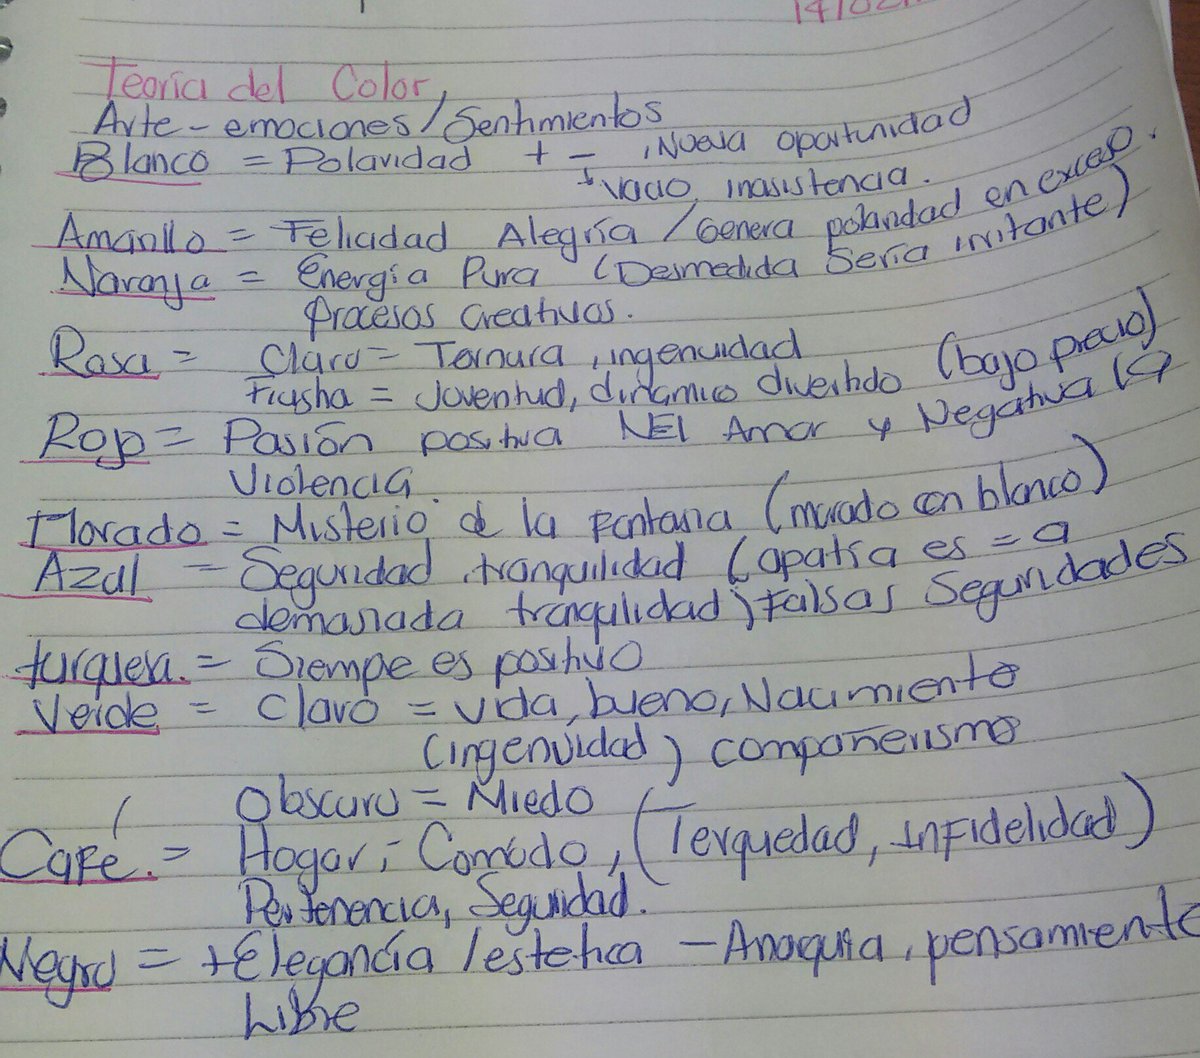 14/02/
Teoría del Color,
Arte - emociones / Sentimientos
Blanco = Polaridad + - , Nueva oportunidad
+ vacio, inasistencia.
Amarillo = Felicidad Alegría / Genera polaridad en exceso.
Naranja = Energía Pura (Desmedida Sería irritante)
Procesos Creativos.
Rosa = Claro = Ternura, ingenuidad
Fiusha = Joventud, dinámico divertido (bajo precio)
Rojo = Pasión positiva El Amor y Negativa la
Violencia.
Morado = Misterio d la fantasia (morado con blanco)
Azul = Seguridad, tranquilidad (apatía es = a
demasiada tranquilidad) Falsas Seguridades
turquesa. = Siempe es positivo
Verde = Claro = vida, bueno, Nacimiento
(ingenuidad) compañerismo
Obscuro = Miedo
Café. = Hogar, - Comodo, (Terquedad, infidelidad)
Pertenencia, Seguridad.
Negro = + Elegancía / estetica - Anarquia, pensamiento
Libre